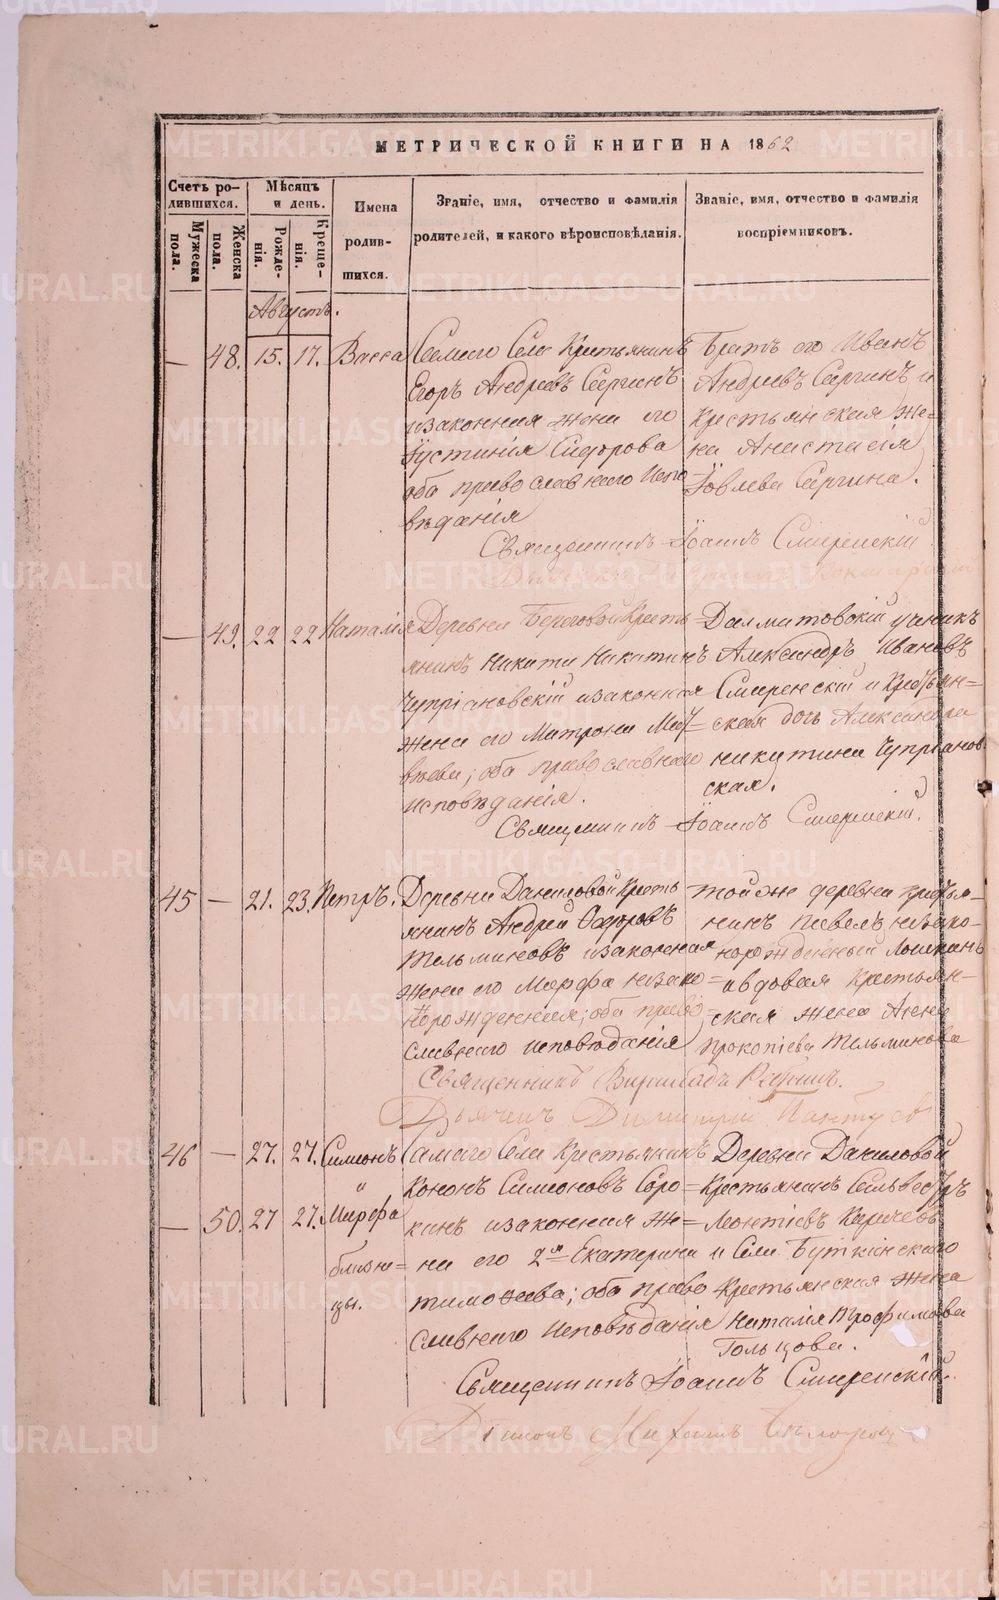 МЕТРИЧЕСКОЙ КНИГИ НА 1862
Счетъ ро-
дившихся.
Мужеска
пола.
Женска
пола.
Мѣсяцъ
и день.
Рожде-
нія.
Креще-
нія.
Имена
родив-
шихся.
Званіе, имя, отчество и фамилія
родителей, и какого вѣроисповѣданія.
Званіе, имя, отчество и фамилія
воспріемниковъ.
Августъ.
— 48. 15. 17. Васса
Самаго Села Крестьянинъ
Егоръ Андреевъ Сергинъ
и законная жена его
Іустинія Сидорова
оба православнаго испо
вѣданія
Братъ его Иванъ
Андреевъ Сергинъ и
крестьянская же-
на Анастасія
Іовлева Сергина.
Священникъ Іоаннъ Смиренскій
— 49. 22 22 Наталія
Деревни Береговой Кресть-
янинъ Никита Никитинъ
Чупріановскій и законная
жена его Матрона Мат-
вѣева; оба православнаго
исповѣданія.
Далматовскій ученикъ
Александръ Ивановъ
Смиренскій и Крестьян-
ская дочь Александра
Никитина Чупріанов
ская.
Священникъ Іоаннъ Смиренскій.
45 — 21. 23. Петръ.
Деревни Даниловой Кресть
янинъ Андрей Ѳедоровъ
Тельминовъ и законная
жена его Марфа незако-
норожденная; оба право-
славнаго исповѣданія
той же деревни крестья-
нинъ Павелъ незако-
норожденный
и вдовая крестьян-
ская жена Анна
Прокопіева Тельминова
Священникъ
Дьячекъ Димитрій
46 — 27. 27. Симеонъ
"
— 50. 27 27. Марфа
близне-
цы.
Самаго Села Крестьянинъ
Кононъ Симеоновъ Соро-
кинъ и законная же-
на его 2я Екатерина
Тимоѳеева; оба право
славнаго исповѣданія
Деревни Даниловой
Крестьянинъ Сильвестръ
Леонтіевъ
и Села Буткинскаго
крестьянская жена
Наталія Трофимова
Гольцова.
Священникъ Іоаннъ Смиренскій.
METRIKI.GASO-URAL.RU